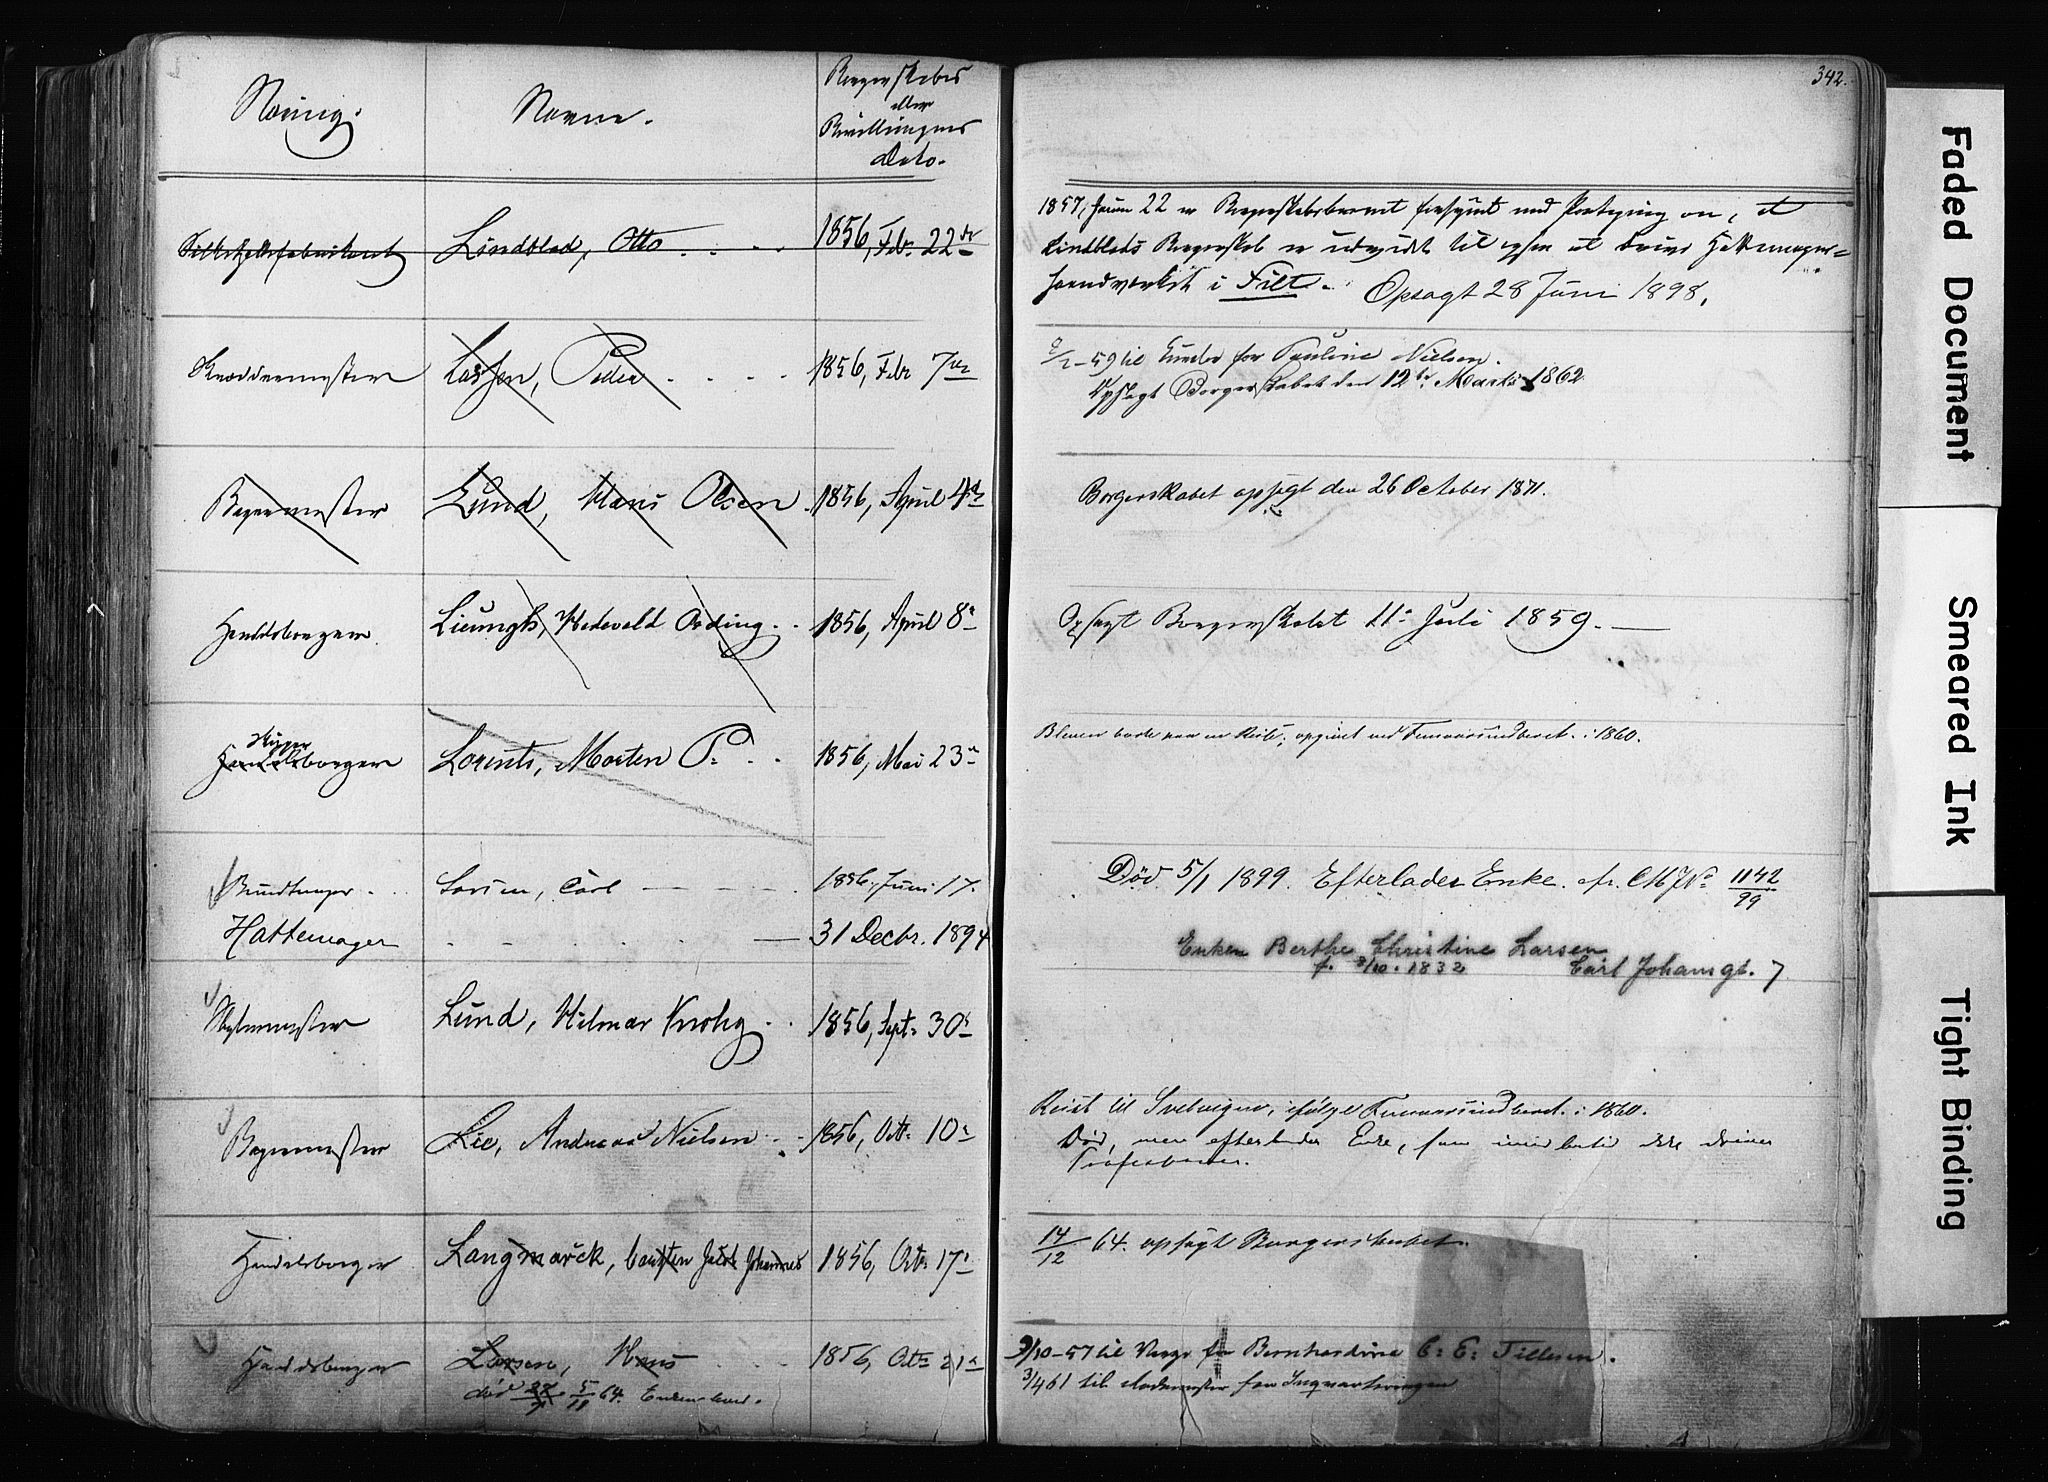 342.
Næring. Navne. Borgerskabets
eller
Bevillingens
Dato.
Lindblad, Otto 1856, Febr. 22de
1857, Juni 22 er Borgerskabsbrevet forsynet med Paategning om, at
Lindblads Borgerskab er udvidet til ogsaa at drive Hattemager-
haandværket i Filt. Opsagt 28 Juni 1898.
Skræddermester Larsen, Peder 1856, Febr 7de
59 til for Pauline Nielsen.
Opsagt Borgerskabet den 12te Marts 1862.
Bagermester Lund, Hans Olsen 1856, April 4de
Borgerskabet opsagt den 26 October 1871.
Handelsborger Lieungh, Hedevald Ording 1856, April 8de
Opsagt Borgerskabet 11te Juli 1859.
Handelsborger Lorents, Morten P. 1856, Mai 23de
opgivet ved 1860.
Bundtmager Larsen, Carl 1856, Juni 17.
Død 5/1 1899. Efterlader Enke. cfr. 1142/99
Hattemager 31 Decbr. 1894
Enken Berthe Christine Larsen
f. 8/10. 1832 Carl Johansgt. 7
Lund, Hilmar Krohg 1856, Sept. 30te
Bagermester Lie, Andreas Nielsen 1856, Octr. 10de
Reist til Svelvigen, ifølge 1860.
Død, men efterlader Enke, som imidlertid ikke driver
Professionen.
Handelsborger Langmarck, Carsten Jacob Johannes 1856, Octr. 17de
14/12 64. opsagt Borgerskabet.
Handelsborger Larsen, Hans 1856, Octr. 21de
død 5/11 64. Enken
3/10-57 til Værge for Bernhardine C. E. Tillesen.
3/4 61 til for Inqvarteringen
Faded Document
Smeared Ink
Tight Binding